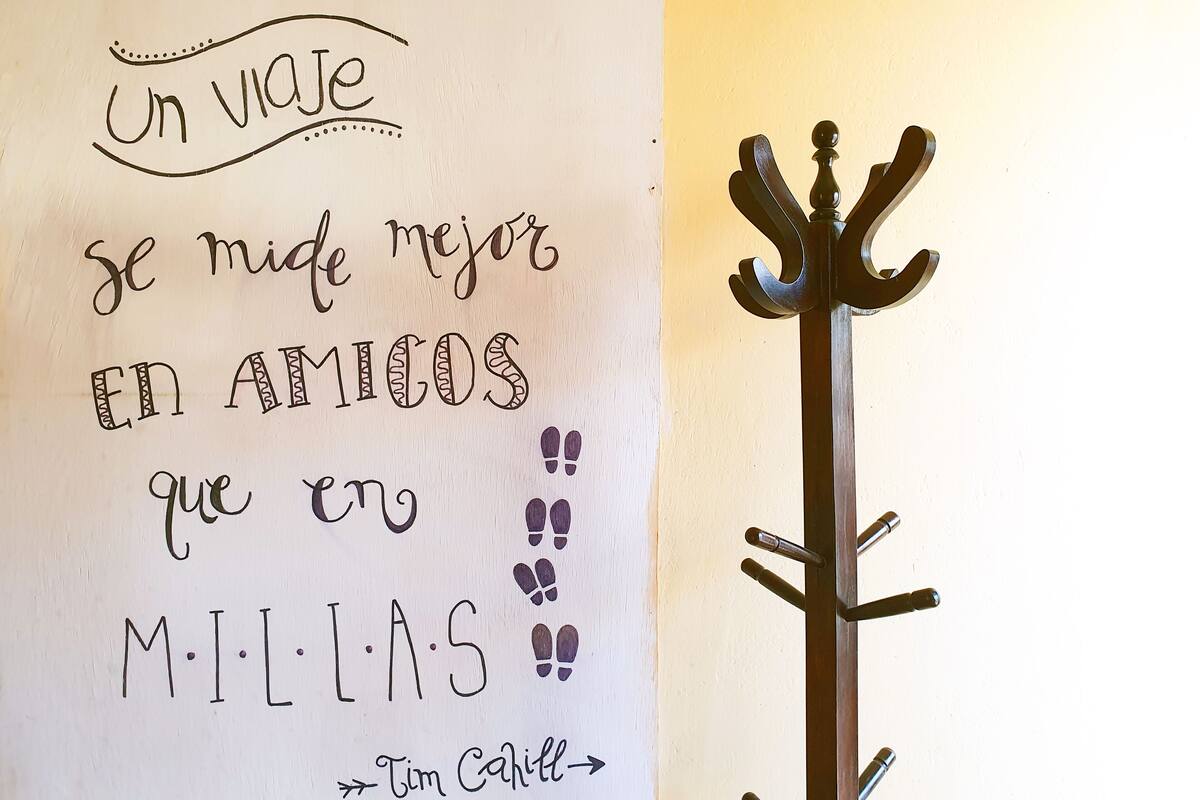 Un VIaJe
se mide mejor
En AMICOS
que en
M.I.L.L.A.S
Tim Cahill